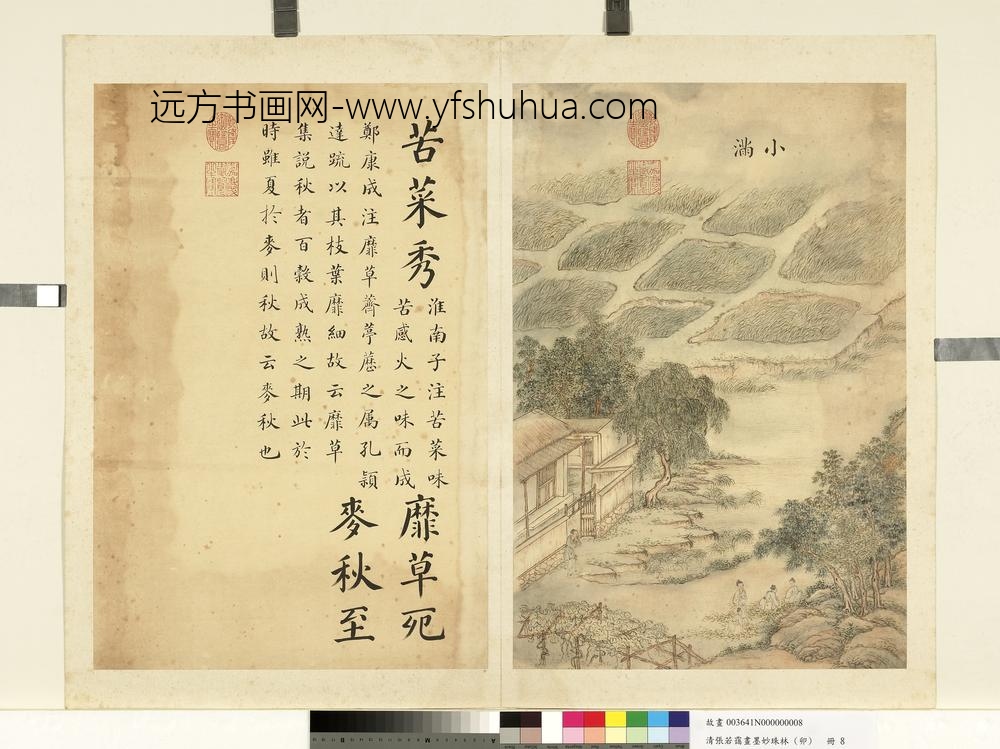 远方书画网-www.yfshuhua.com
小滿
苦菜秀
淮南子注苦菜味
苦感火之味而成
靡草死
鄭康成注靡草薺葶藶之属孔頴
達疏以其枝葉靡細故云靡草
麥秋至
集説秋者百穀成熟之期此於
時雖夏於麥則秋故云麥秋也
故畫 003641N000000008
清張若靄畫墨妙珠林（卯） 冊 8